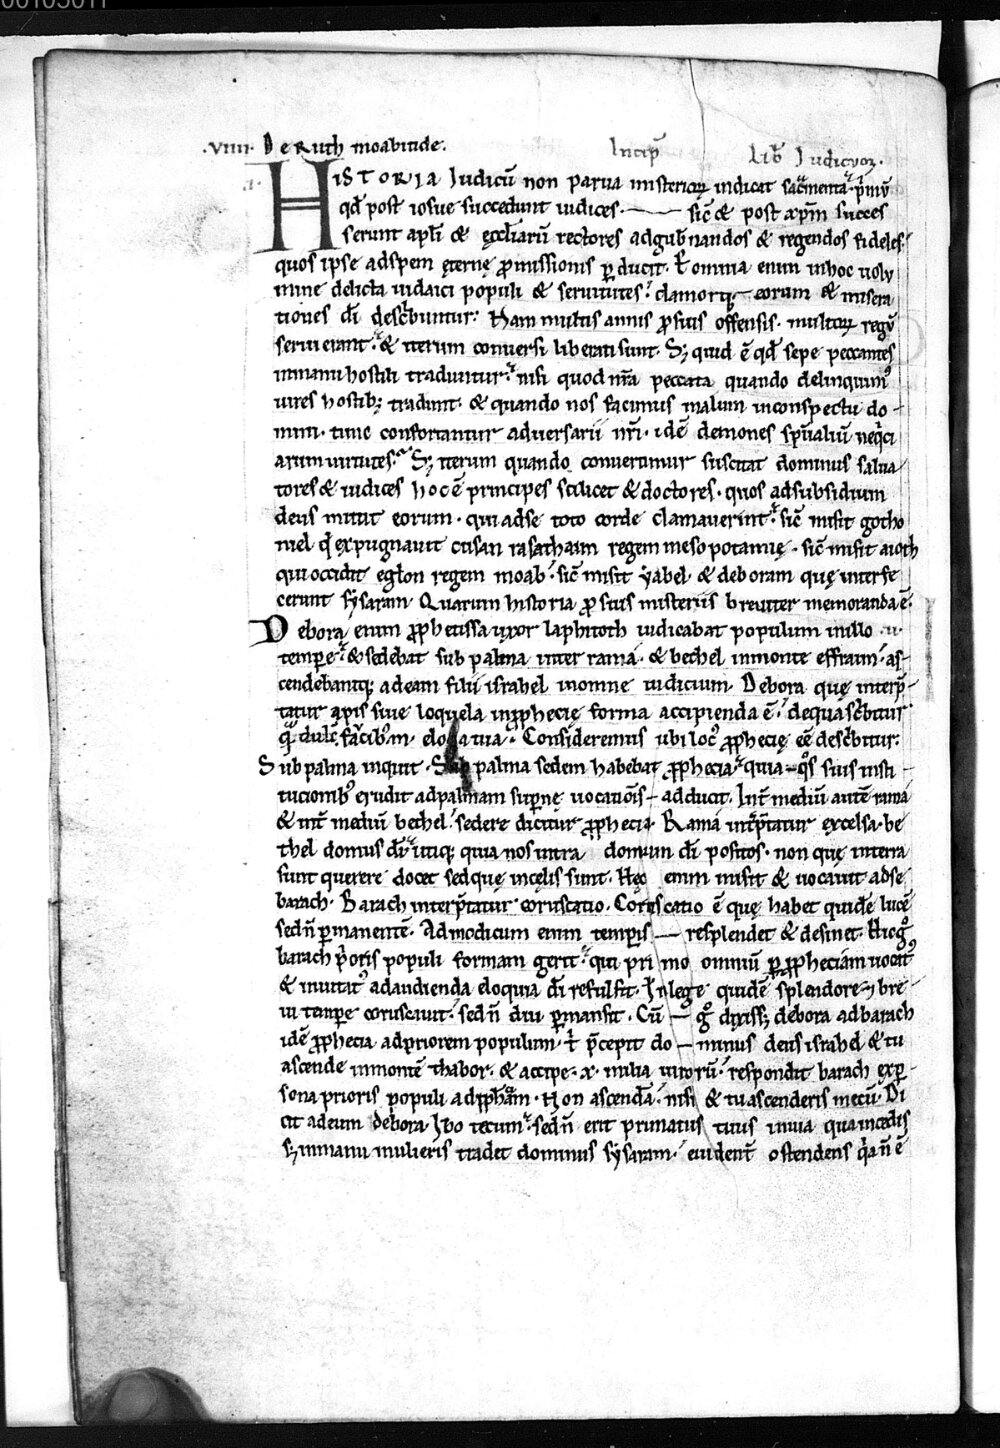 00103011
.VIIII. De Ruth moabitide. Incip̄ Lib̄ Iudicuꝝ.
.a. HISTORIA Iudicū non parua misterioꝝ indicat sac̄menta. p̄mū
qđ post iosue succedunt iudices. sic̄ & post xp̄m succes
serunt apl̄i & ęcclīarū rectores adgub̄nandos & regendos fideles.
quos ipse adspem ęternę ꝓmissionis ꝑducit. omnia enim inhoc uolu
mine delicta iudaici populi & seruitutes. clamorq; eorum & misera
tiones dī desc̄buntur. Nam multis annis ꝓ suis offensis. multoꝝ regū
seruierant. & iterum conuersi liberati sunt. S; quid ē qđ sepe peccantes
inmanu hostili traduntur. nisi quod nr̄a peccata quando delinquim᷒
uires hostib; tradunt. & quando nos facimus malum inconspectu do-
mini. tunc confortantur aduersarii nr̄i. idē demones sp̄ualiū neq̄ci
arum uirtutes. S; iterum quando conuertimur suscitat dominus salua
tores & iudices hoc ē principes scilicet & doctores. quos adsubsidium
deus mittit eorum. qui adse toto corde clamauerint. sic̄ misit gotho
niel q̄ expugnauit cusan rasathaim regem mesopotamię. sic̄ misit aioth
qui occidit eglon regem moab. sic̄ misit ẏabel & deboram quę interfe
cerunt sẏsaram. Quarum historia ꝓ suis misteriis breuiter memoranda ē.
Debora enim ꝓphetissa uxor laphitoth iudicabat populum inillo
tempore. & sedebat sub palma inter ramá. & bethel inmonte effraim. as-
cendebantq; adeam filii israhel inomne iudicium. Debora quę interp̄-
tatur apis siue loquela inꝓphecię forma accipienda ē. dequa sc̄bitur
q̄ dulc̄ faucib᷒ m̄. eloq̄a tua. Consideremus ubi loc᷒ ꝓphecię eē desc̄bitur.
Sub palma inquit. Sub palma sedem habebat ꝓphecia. quia q᷒s suis insti-
tucionib᷒ erudit adpalmam supernę uocatiōis adducit. Int̄ mediū autē ramá
& int̄ mediū bethel. sedere dicitur ꝓphecia. Ramá int̄p̄tatur excelsa. be
thel domus dī. utiq; quia nos intra domum dī positos. non quę interra
sunt querere docet sed quę incęlis sunt. Hęc enim misit & uocauit adse
barach. Barach interp̄tatur coruscatio. Coruscatio ē quę habet quidē lucē
sed n̄ ꝑmanentē. Admodicum enim temporis resplendet & desinet. Hic g᷒
barach p̄oris populi formam gerit. qui primo omniū ꝑ ꝓpheciam uocat᷒
& inuitat᷒ adaudienda eloquia dī refulsit. In lege quidē splendore bre
ui tempore coruscauit. sed n̄ diu ꝑmansit. Cū g᷒ dixiss; debora ad barach
idē ꝓphecia adpriorem populum. t̄ p̄cepit dominus deus israhel & tu
ascende inmontē thabor. & accipe .x. milia uirorū. respondit barach exꝑ-
sona prioris populi adꝓph̄am. Non ascendā. nisi & tu ascenderis mecū. Di
cit adeum debora. Ibo tecum. sed n̄ erit primatus tuus inuia qua incedis
s; inmanu mulieris tradet dominus sẏsaram. euident̄ ostendens q̄a n̄ ē